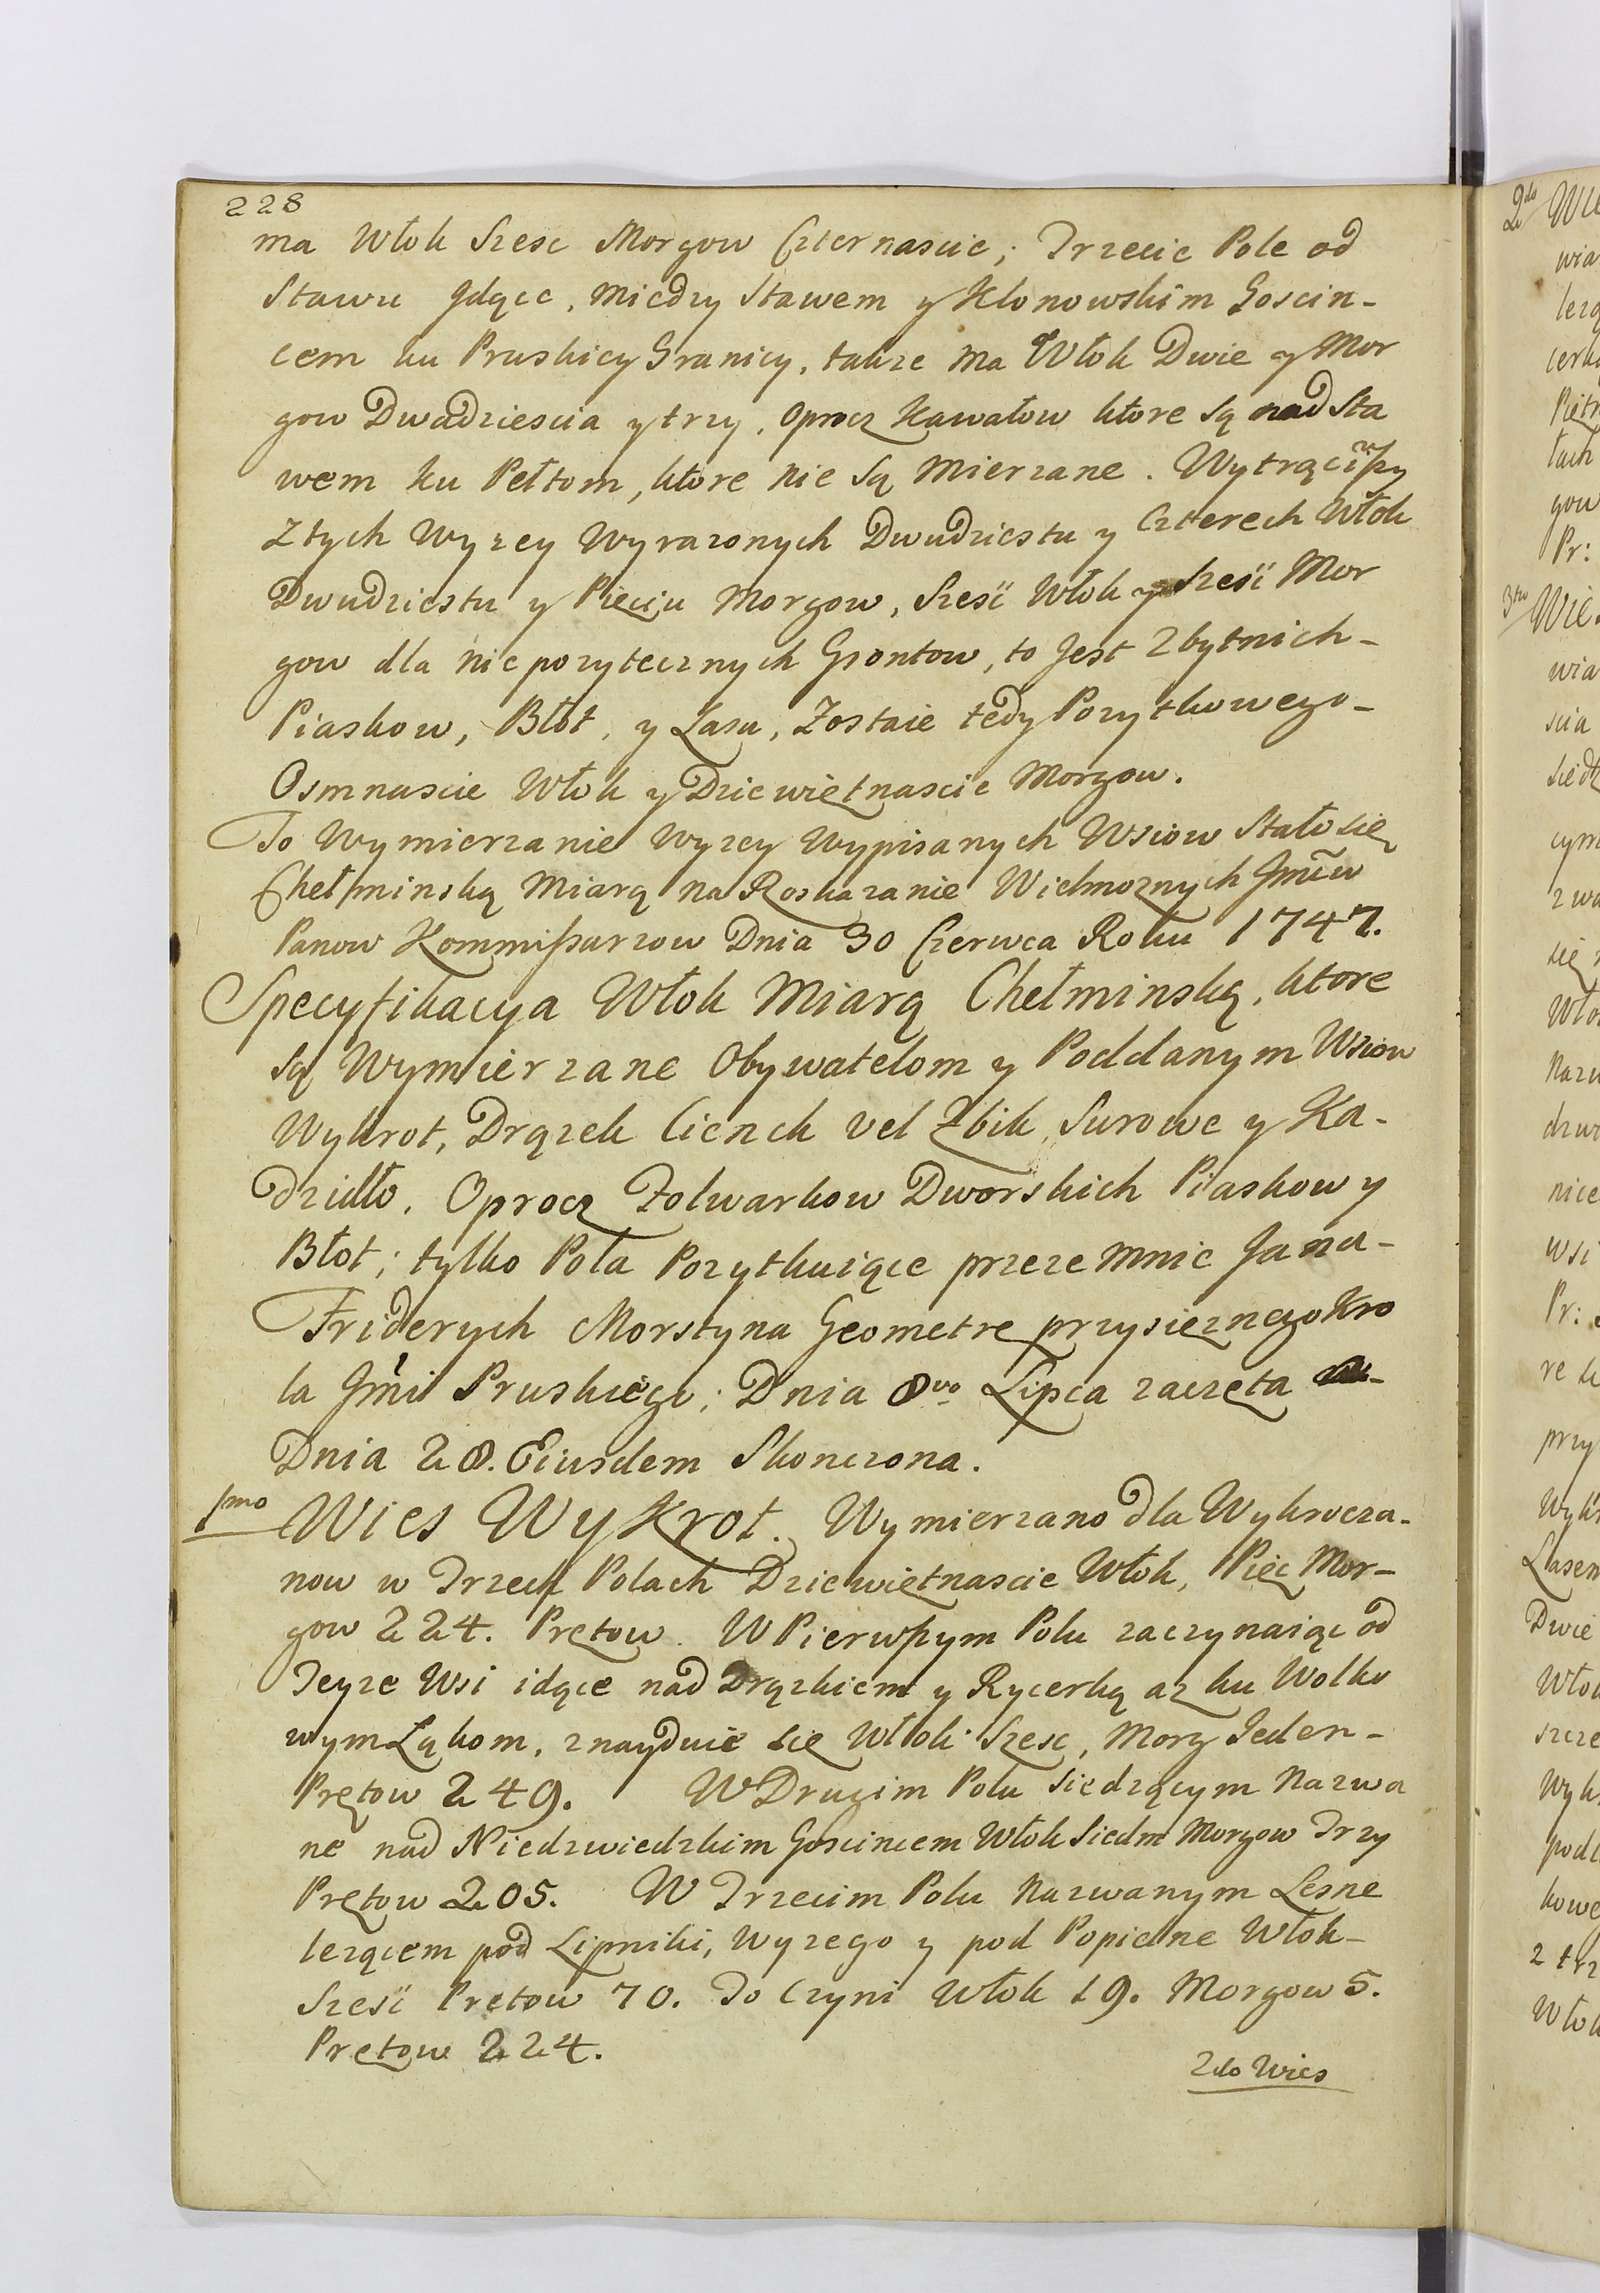 228
ma Włok Szesc Morgow Czternascie; Trzecie Pole od
Stawu Jdące, Miedzy Stawem y Klonowskim Goscin-
cem ku Pruskiey Granicy, takze ma Włok Dwie y Mor
gow Dwadziescia y trzy, oprocz Kawałow ktore są nad Sta
wem ku Pełtom, ktore nie są Mierzane. Wytrąciwszy
z tych Wyzey Wyrazonych Dwudziestu y Czterech Włok
Dwudziestu y Pięciu Morgow, Szesć Włok y Szesć Mor
gow dla niepozytecznych Grontow, to Jest zbytnich-
Piaskow, Błot, y Lasu, Zostaie tedy Pozytkowego-
Osmnascie Włok y Dziewiętnascie Morgow.
To Wymierzanie Wyzey Wypisanych Wsiow Stało się
Chełminską Miarą na Roskazanie Wielmoznych Jmciw
Panow Kommissarzow Dnia 30 Czerwca Roku 1747.
Specyfikacya Włok Miarą Chełminską, ktore
są Wymierzane Obywatelom y Poddanym Wsiow
Wykrot, Drązek Cienck vel Zbik, Surowe y Ka-
dzidło, Oprocz Folwarkow Dworskich Piaskow y
Błot; tylko Pola Pozytkuiące przezemnie Jana-
Friderych Morstyna Geometrę przysieznego Kro
la Jmci Pruskiego; Dnia 8vo Lipca zaczęta
Dnia 28. Eiusdem Skonczona.
1mo Wies Wykrot. Wymierzano dla Wykrocza-
now w Trzech Polach Dziewiętnascie Włok, Pięc Mor-
gow 224. Prętow. W Pierwszym Polu zaczynaiąc od
Teyze Wsi idące nad Drązkiem y Rycerką az ku Wolko
wym Łąkom, znayduie się Włok Szesc, Morg Jeden-
Prętow 249. W Drugim Polu Siedzącym Nazwa
ne nad Niedzwiedzkim Goscincem Włok Siedm Morgow Trzy
Prętow 205. W Trzecim Polu Nazwanym Lesne
lezącem pod Lipniki, Wyzego y pod Popielne Włok-
Szesć Prętow 70. To Czyni Włok 19. Morgow 5.
Prętow 224.
2do Wies